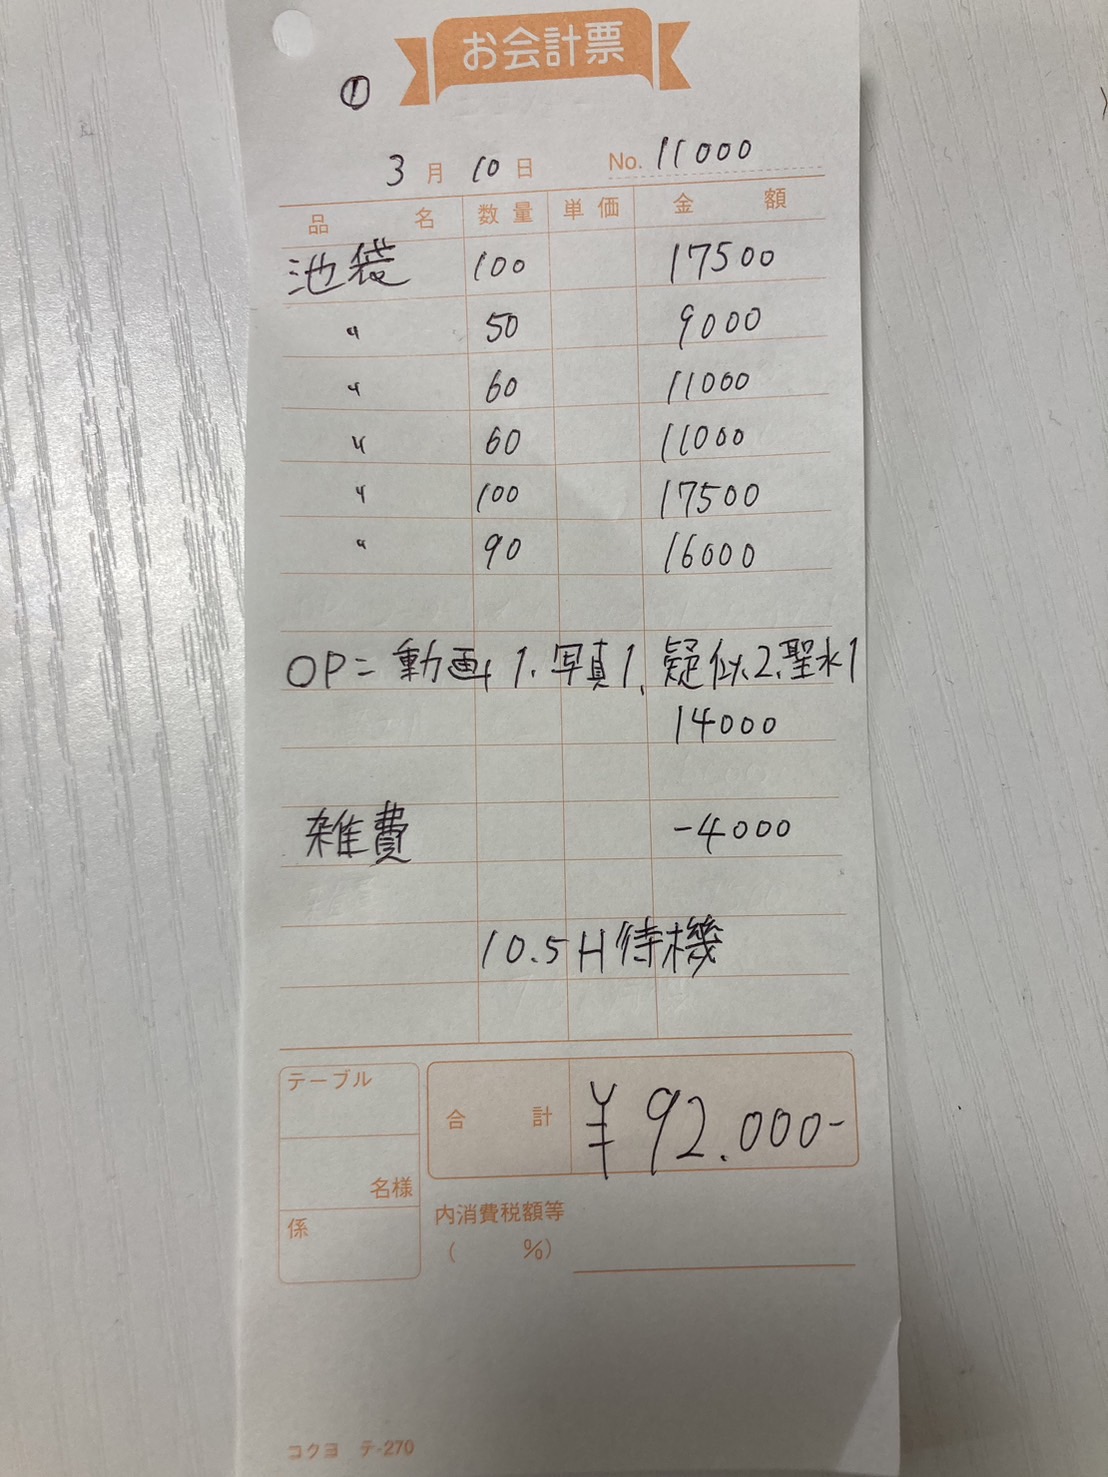 お会計票
①
3月10日 No. 11000
品名 数量 単価 金額
池袋 100 17500
〃 50 9000
〃 60 11000
〃 60 11000
〃 100 17500
〃 90 16000
OP= 動画1、写真1、疑似2、聖水1
14000
雑費 -4000
10.5H待機
テーブル
合計 ¥92.000-
名様
係
内消費税額等
( %)
コクヨ テ-270